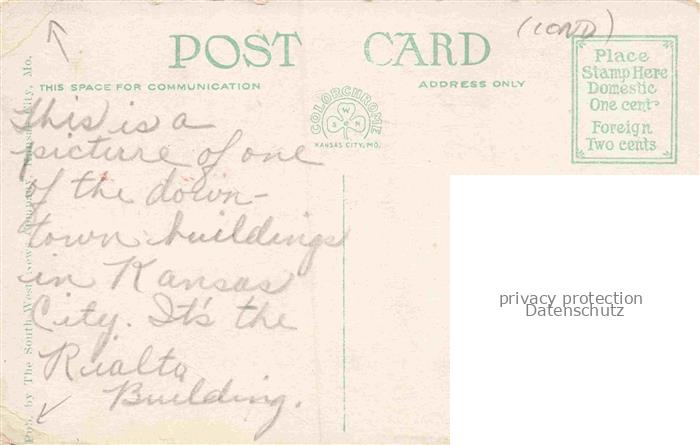 (COND)
POST CARD
THIS SPACE FOR COMMUNICATION
ADDRESS ONLY
Place
Stamp Here
Domestic
One cent
Foreign
Two cents
COLORCHROME
S W N
KANSAS CITY, MO.
This is a
picture of one
of the down-
town buildings
in Kansas
City. It's the
Rialto
Building.
Pub. by The South West News Company, Kansas City, Mo.
privacy protection
Datenschutz